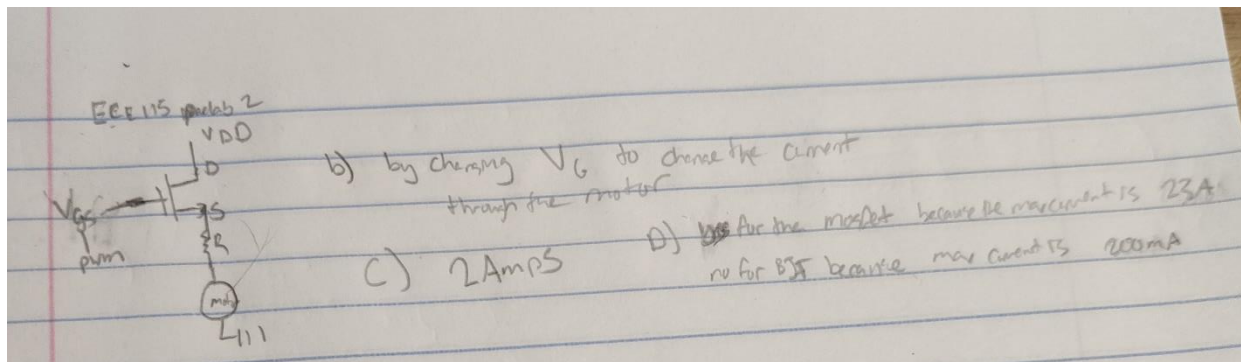 ECE 115 prelab 2
VDD
D
VGS
S
R
pwm
b) by changing VG to change the current
through the motor
C) 2 Amps
D) yes for the mosfet because the max current is 23A
no for BJT because max current is 200mA